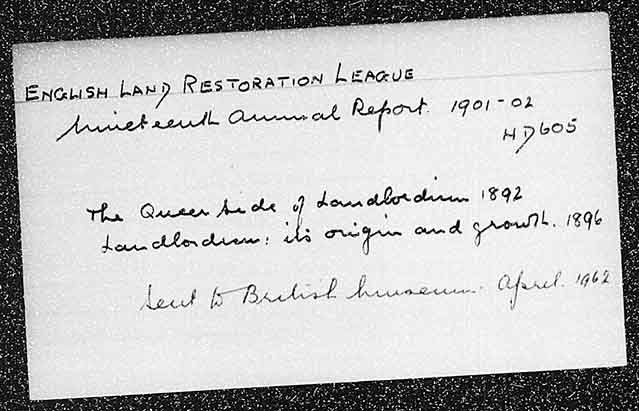 ENGLISH LAND RESTORATION LEAGUE
Nineteenth Annual Report. 1901-02
HD605
The Queer side of Landlordism 1892
Landlordism: its origin and growth. 1896
Sent to British Museum. April. 1962